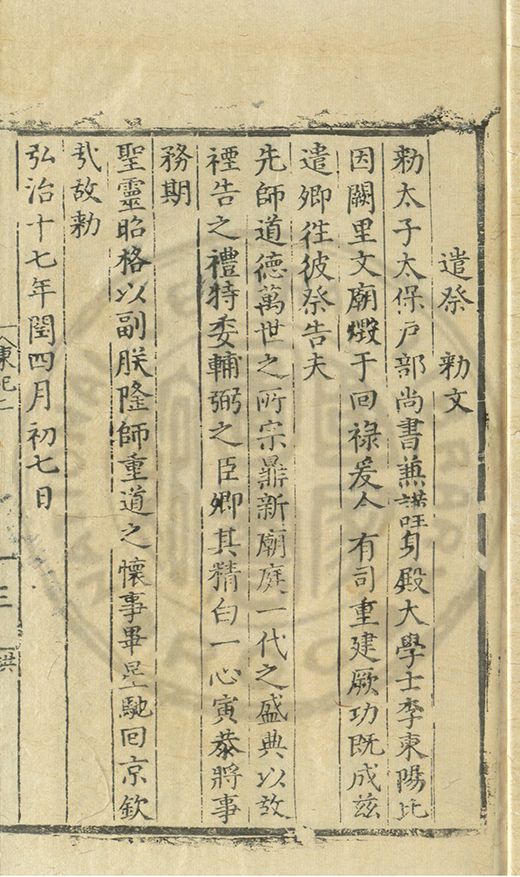 遣祭　勅文
勅太子太保戶部尚書兼謹身殿大學士李東陽比
因闕里文廟燬于回祿爰令有司重建厥功既成茲
遣卿徃彼祭告夫
先師道德萬世之所宗鼎新廟庭一代之盛典以故
禋告之禮特委輔弼之臣卿其精白一心寅恭將事
務期
聖靈昭格以副朕隆師重道之懷事畢星馳回京欽
哉故勅
弘治十七年閏四月初七日
東祀一
三